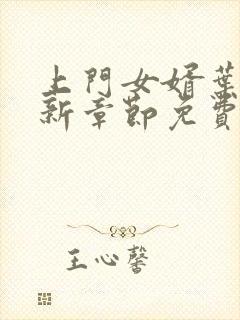 上門女婿葉
新章節免費
王心馨